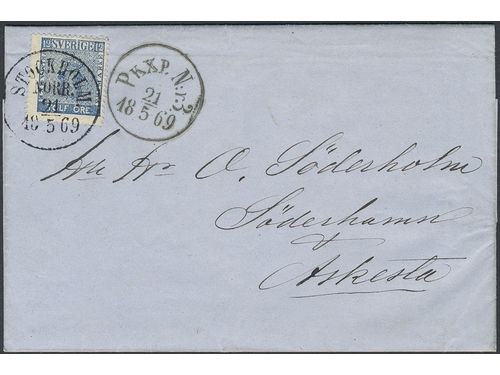 12 SVERIGE 12
TOLF ÖRE
STOCKHOLM
NORR.
21
18 5 69
PKXP. N:r 3
21
18 5 69
O. Söderholm
Söderhamn
&
Askesta